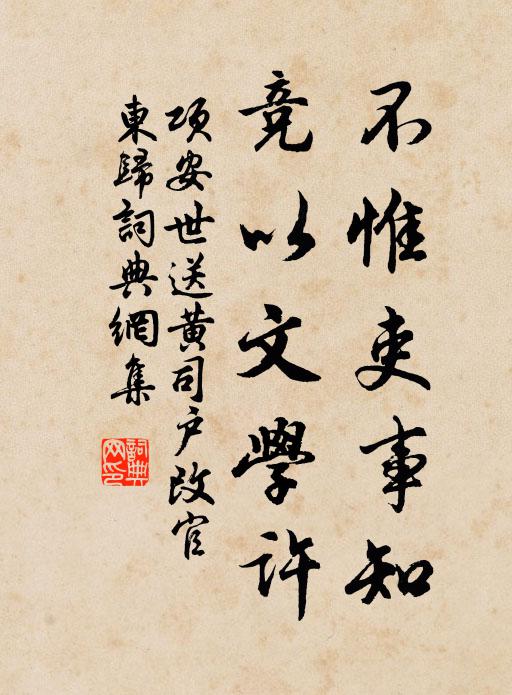 不惟吏事知
竞以文學許
项安世送黄司户改官
東歸詞典網集
詞典网印